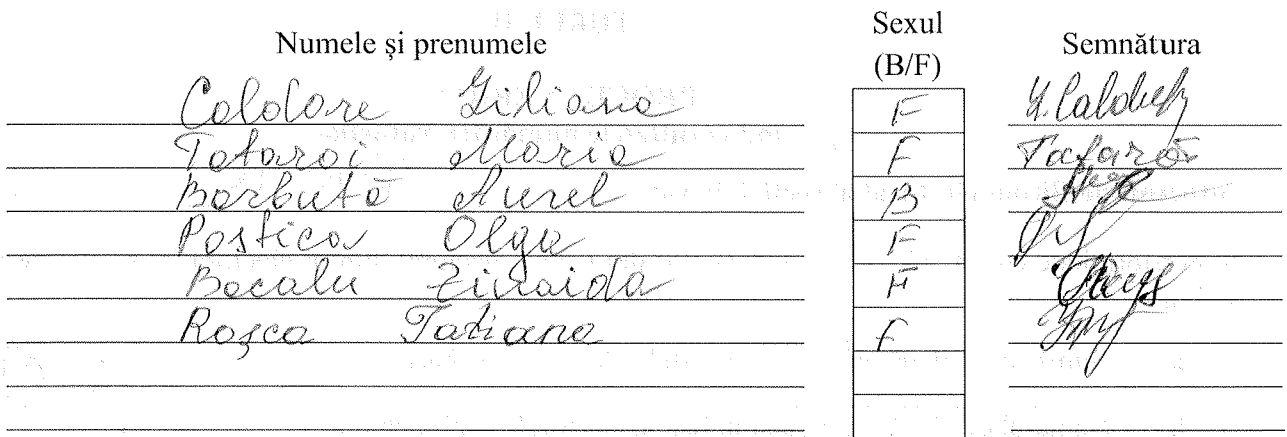 Numele și prenumele Sexul (B/F) Semnătura
Coldare Liliana F
Tataroi Maria F
Barbută Aurel B
Postica Olga F
Bacalu Zinaida F
Roșca Tatiana F